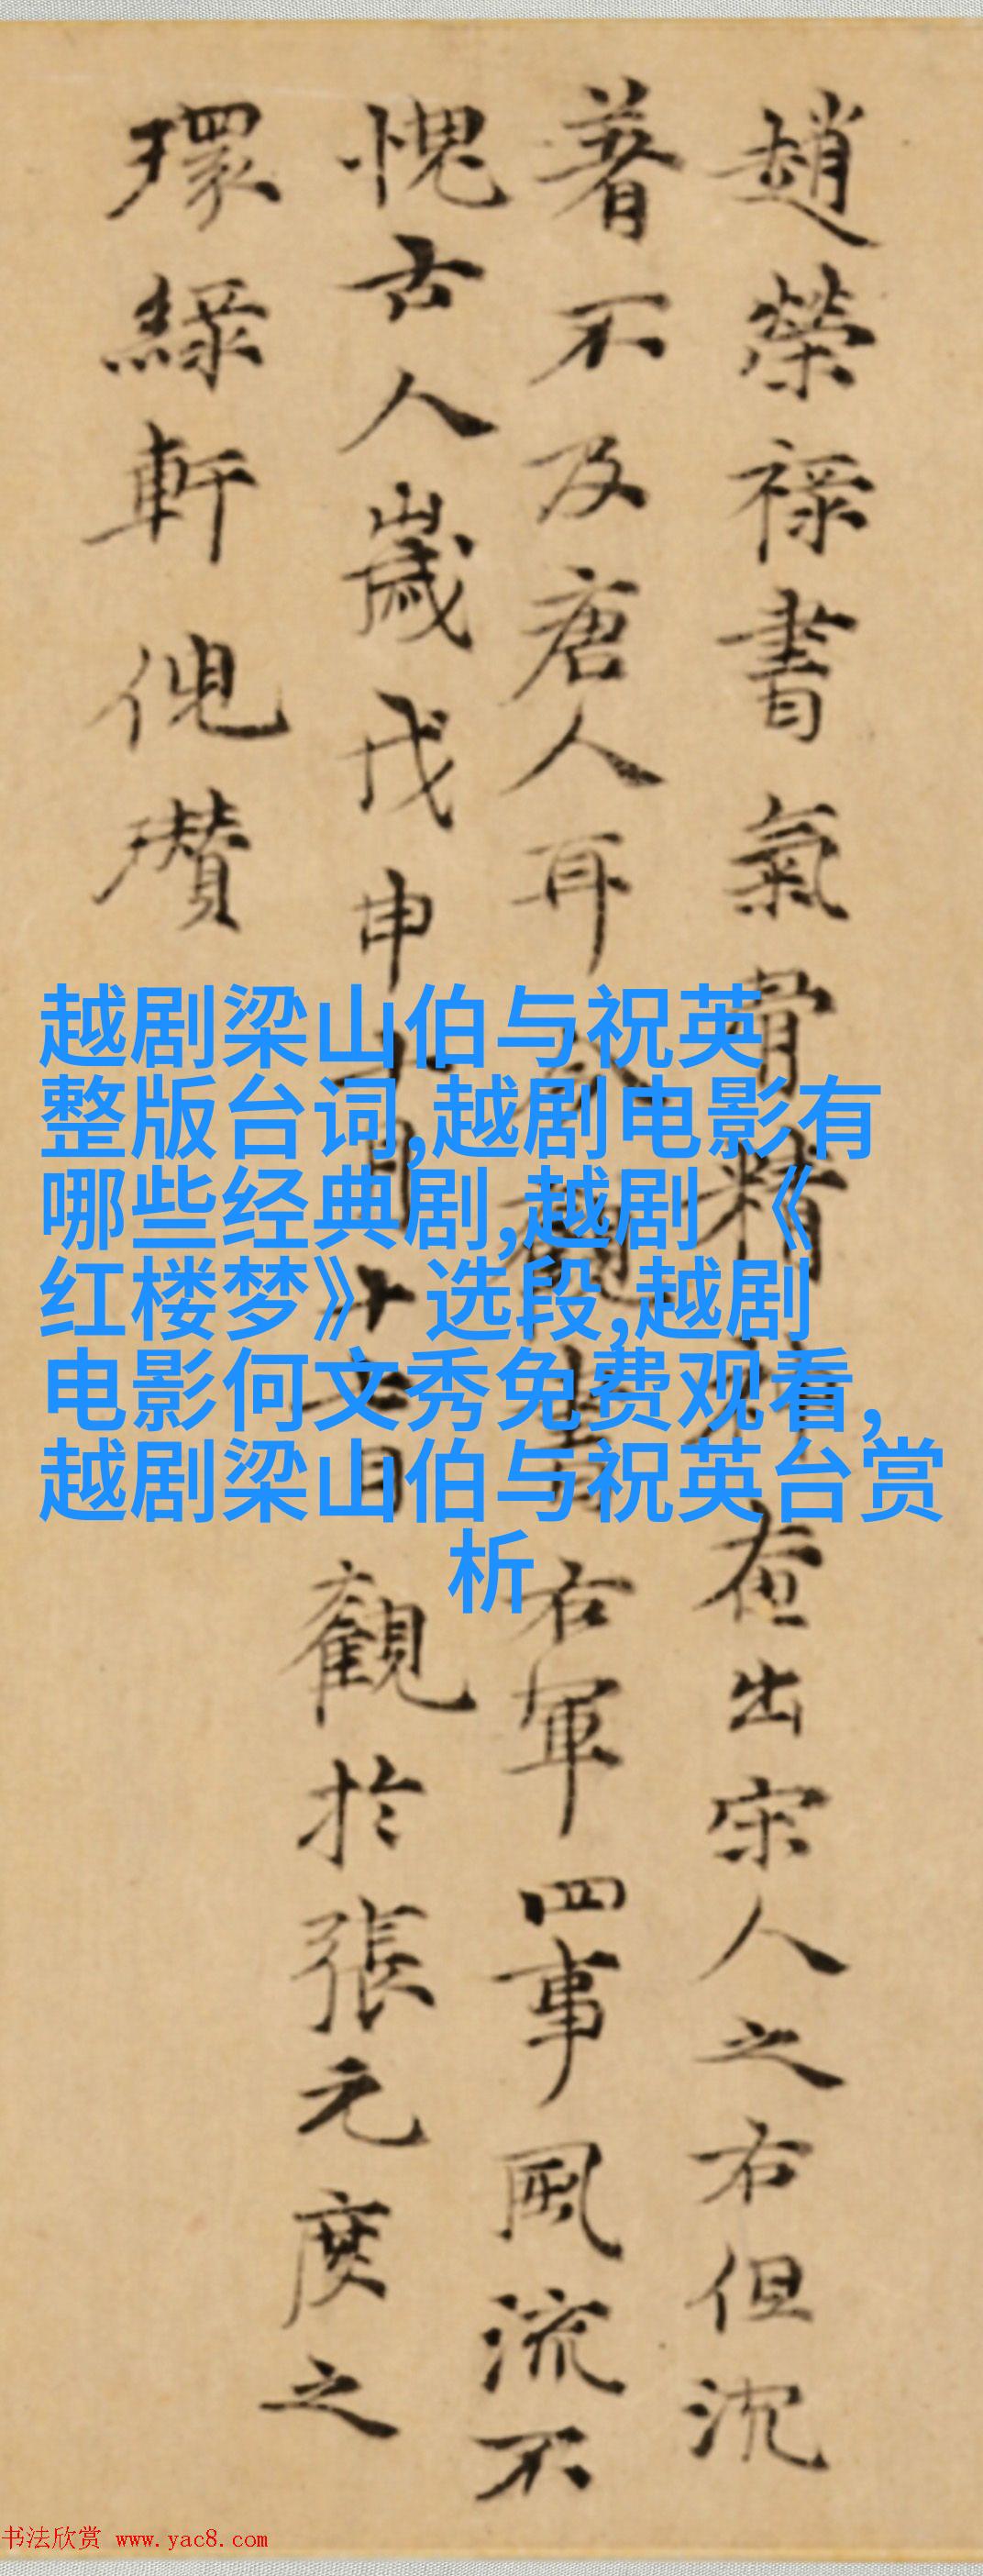 趙榮祿書氣骨精出宋人之右但沉
著不及唐人耳觀書右軍四事風流不
愧古人歲戊申十月十日觀於張元度之
環綠軒倪瓚
越剧梁山伯与祝英
整版台词,越剧电影有
哪些经典剧,越剧 《
红楼梦》 选段,越剧
电影何文秀免费观看,
越剧梁山伯与祝英台赏
析
书法欣赏 www.yac8.com